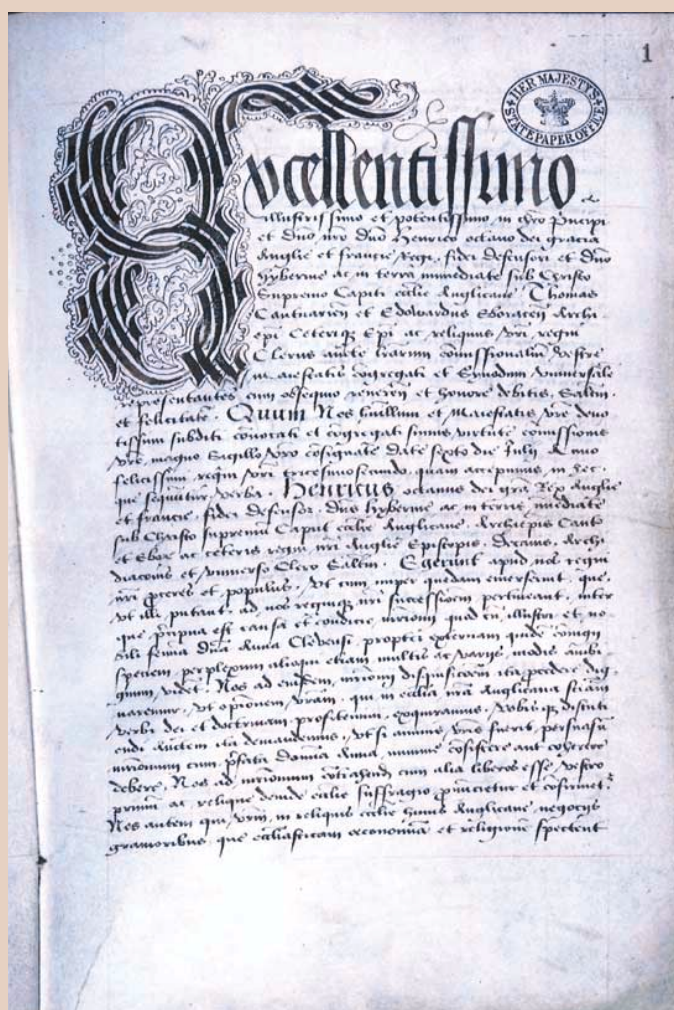 1
HER MAJESTY'S
STATE PAPER OFFICE
Excellentissimo
illustrissimo et potentissimo in chro Principi
et dno nro dno Henrico octavo dei gracia
Anglie et francie Regi, fidei defensori et dno
hybernie ac in terra immediate sub Christo
Supremo Capiti ecclie Anglicane Thomas
Cantuarien et Edowardus Eboracen Archi
epi Ceteriq Epi ac reliquus vri regni
Clerus aucte lrarum comissionalium vestre
maiestatis cogregati et Synodum universale
representantes cum obsequio reveren et honore debitis, Saltm
et felicitate. Quum Nos humillimi et Maiestatis vre devo
tissimi subditi convocati et cogregati simus virtute comissionis
vre, magno Sigillo vro consignate date sexto die Julij Anno
felicissimi regni vri tricesimosecundo, quam accepimus in hec
que sequuntur verba. Henricus octavus dei gra Rex Anglie
et francie, fidei defensor, dns hybernie ac in terris imediate
sub Christo supremum Caput ecclie Anglicane. Archiepis Canto
et Ebor ac ceteris regni nri Anglie Episcopis, Decanis, Archi
diaconis et universo Clero Saltm. Egerunt apud nos regni
nri proceres et populus, ut cum nuper quedam emerserint, que,
ut illi putant, ad nos regniq nri successionem pertineant, inter
que pripua est causa et condicio mrimonij quod cu illustri et no
bili femina dna Anna Clevensi, propter externam quide coniugij
speciem, perplexum alioqui etiam multis ac varijs modis ambi
guum videt. Nos ad eiusdem mrimonij disquisicoem ita procedere dig
naremur, ut opinionem vram, qui in ecclia nra Anglicana sciam
verbi dei et doctrinam profitemini, exquiramus, vobisq discuti
endi auctem ita demandemus, ut si animis vris fuerit persuasu
mrimonium cum prefata domina Anna, minime cosistere aut coherere
debere, Nos ad mrimonium cotrahend cum alia liberos esse, vestro
primum ac relique deinde ecclie suffragio pnuncietur et cofirmet.
Nos autem qui vrm in reliquis ecclie huius Anglicane negocijs
gravioribus, que eccliasticam oeconomia et religione spectent